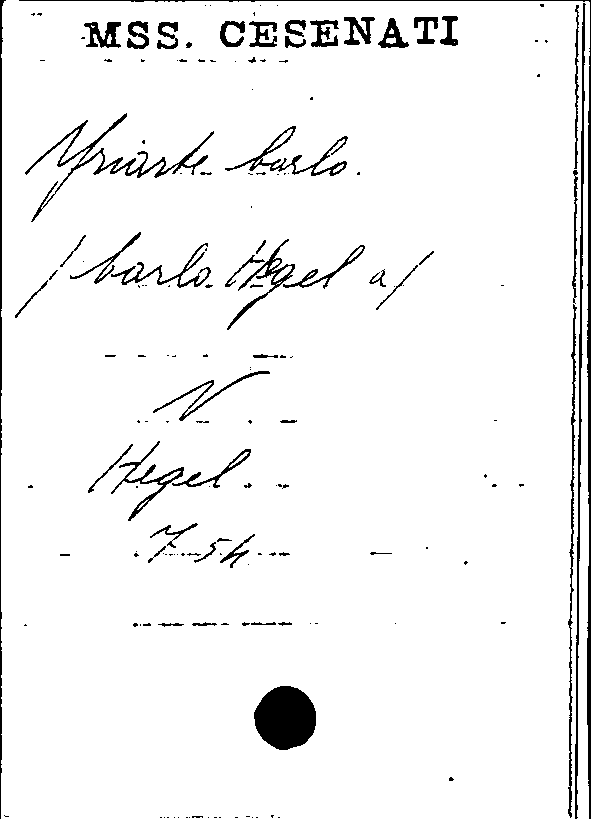 MSS. CESENATI
Yriarte Carlo.
/ Carlo Hegel a/
V
Hegel
7 54